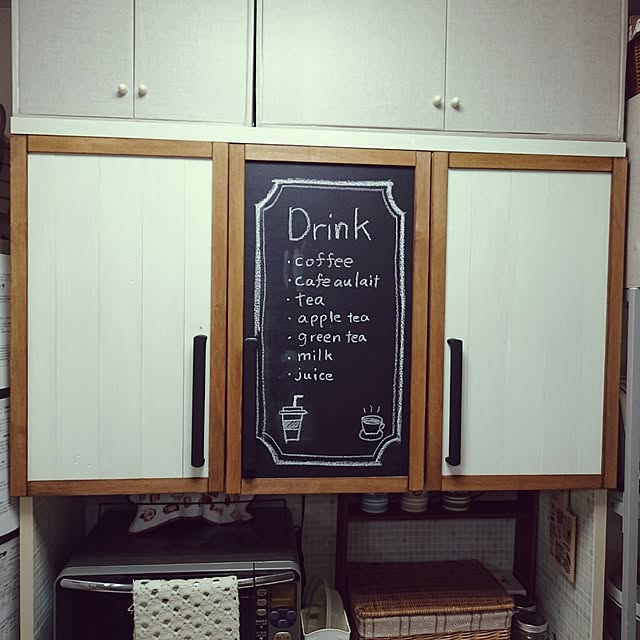 Drink
・coffee
・cafe au lait
・tea
・apple tea
・green tea
・milk
・juice